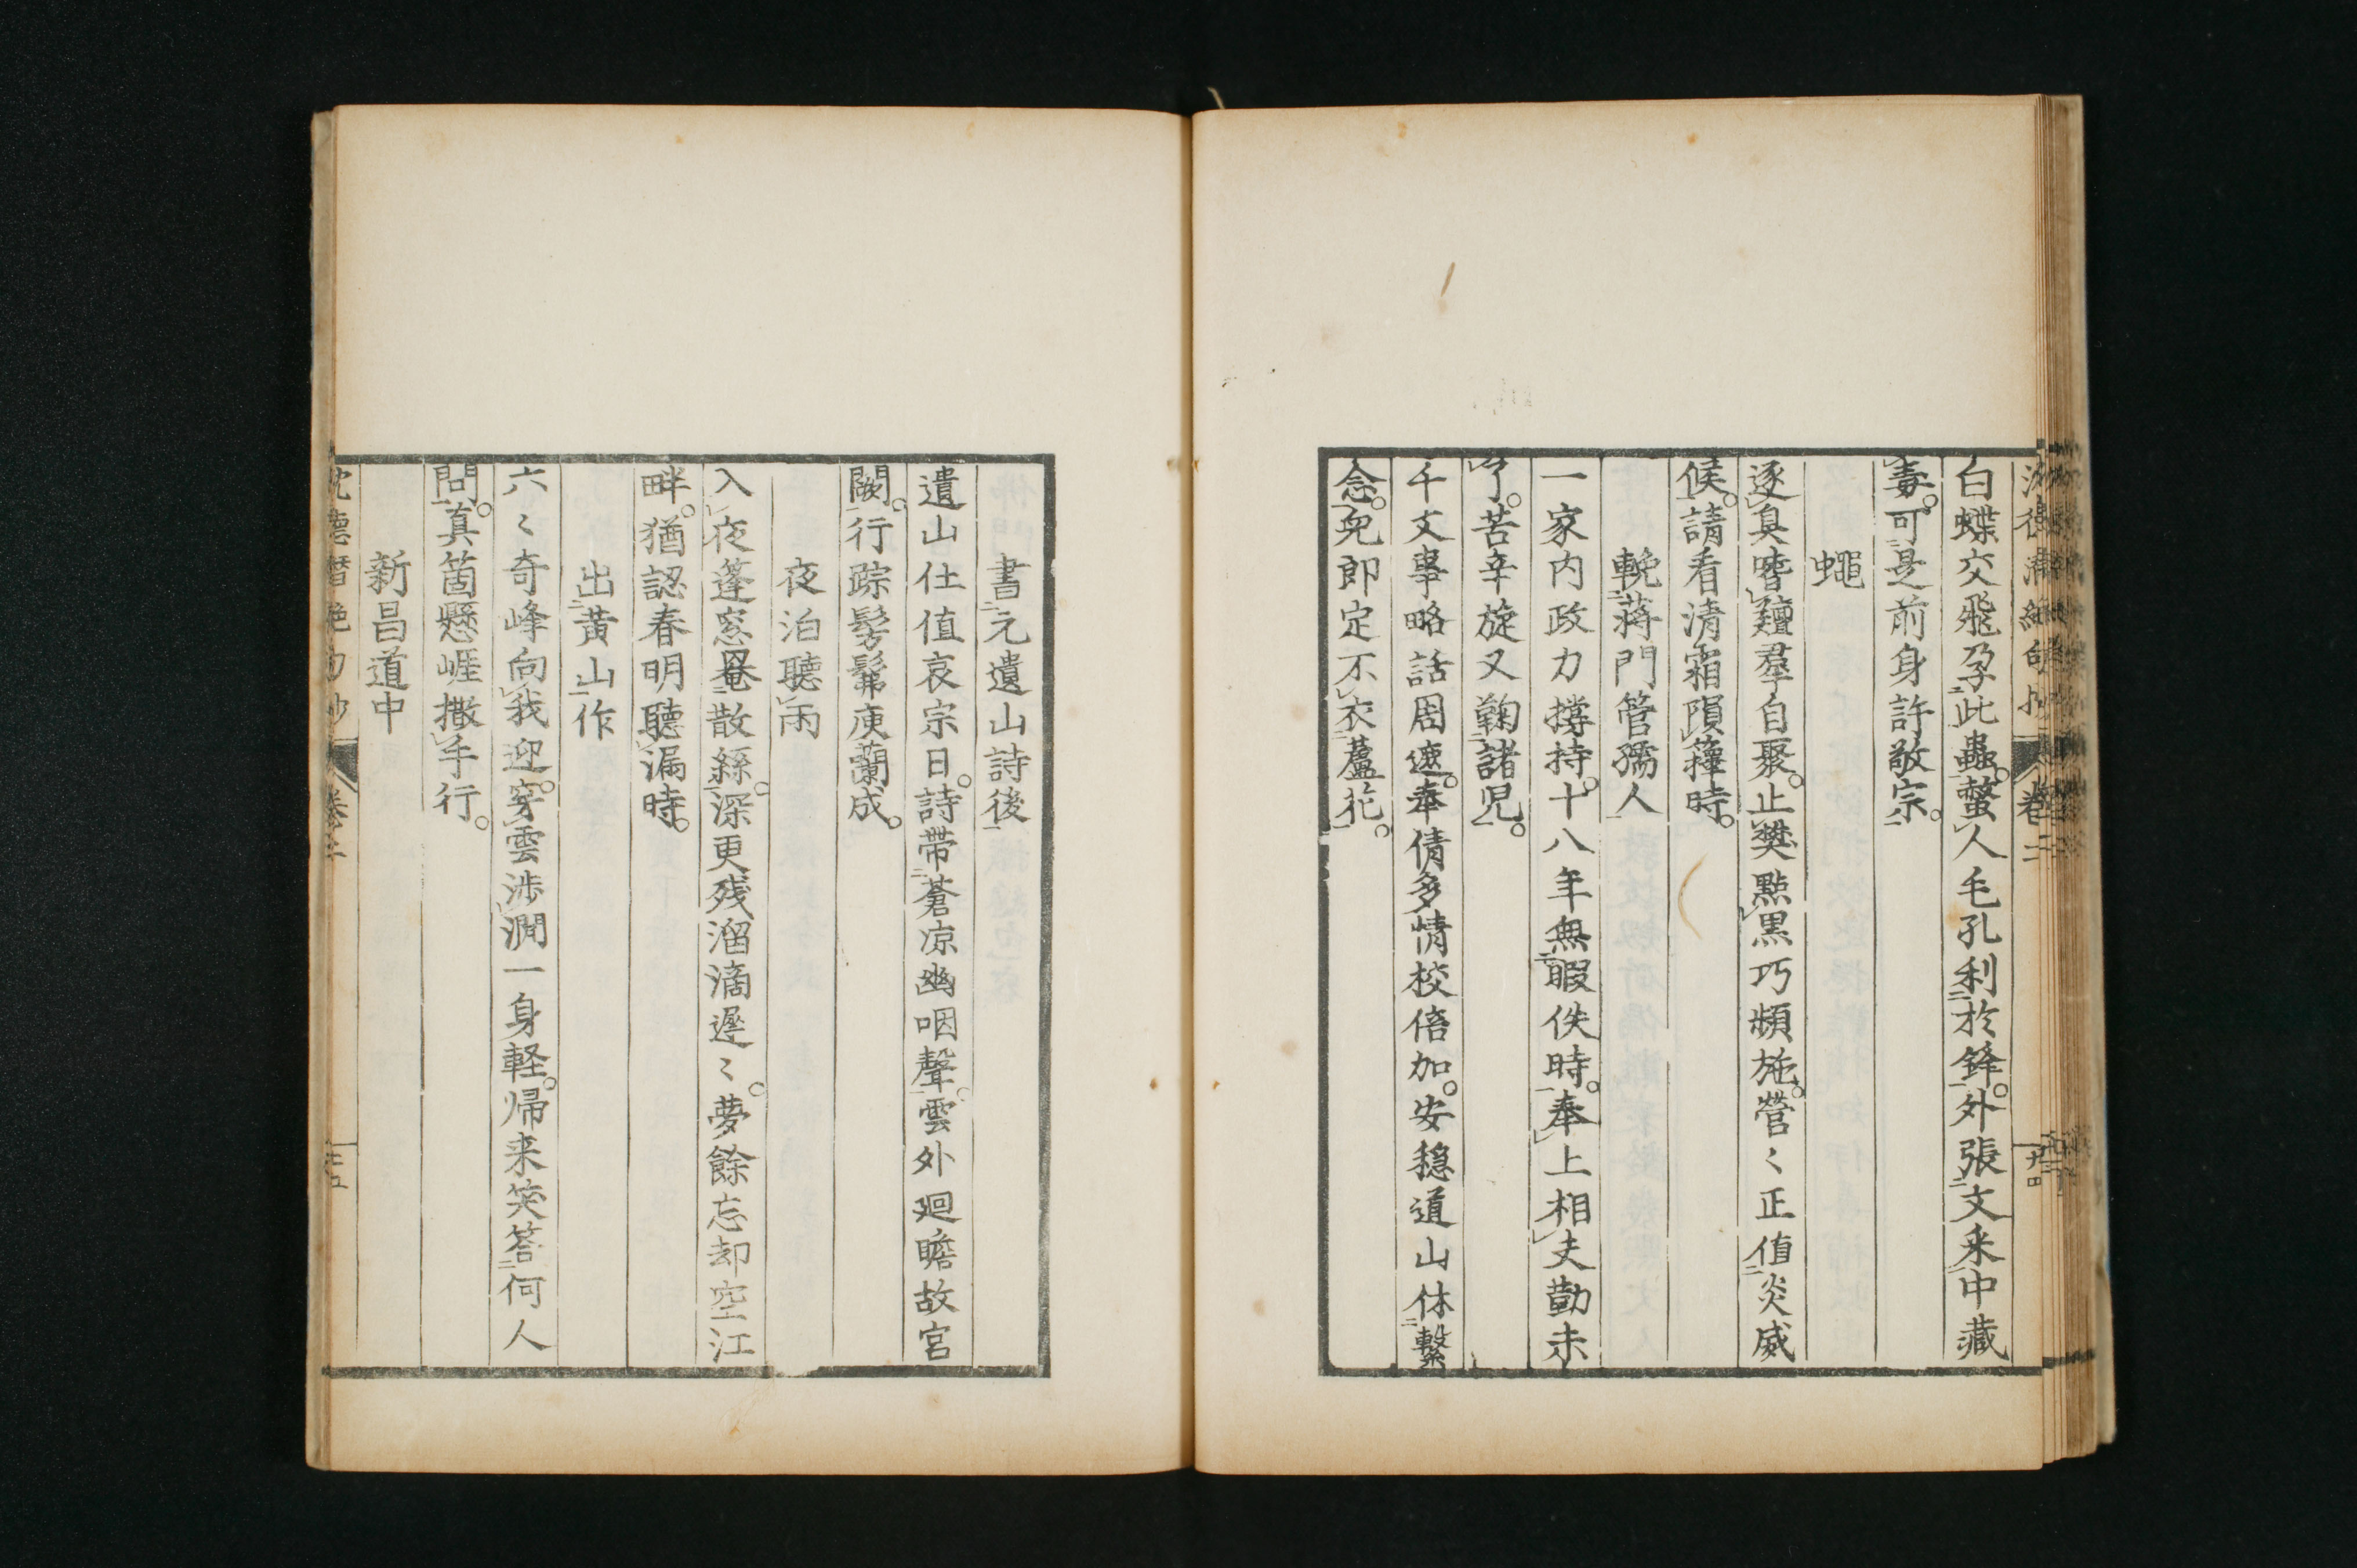 白蝶交飛孕此蟲螫人毛孔利於鋒外張文采中藏
毒可是前身許敬宗
蠅
逐臭嗜羶羣自聚止樊點黒巧頻施營〻正值炎威
候請看清霜隕蘀時
輓蔣門管孺人
一家内政力撐持十八年無暇佚時奉上相夫勤未
了苦辛旋又鞠諸児
千文事略話周遮奉倩多情校倍加安穏道山休繋
念兒郎定不衣蘆花
卷二
書元遺山詩後
遺山仕值哀宗日詩帶蒼凉幽咽聲雲外廻瞻故宮
闕行踪髣髴庾蘭成
夜泊聽雨
入夜蓬窓罨散絲深更残溜滴遲〻夢餘忘却空江
畔猶認春明聽漏時
出黄山作
六〻奇峰向我迎穿雲渉澗一身軽帰来笑答何人
問真箇懸崕撒手行
新昌道中